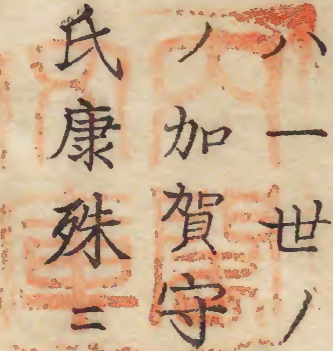 ハ一世ノ
ノ加賀守
氏康殊ニ